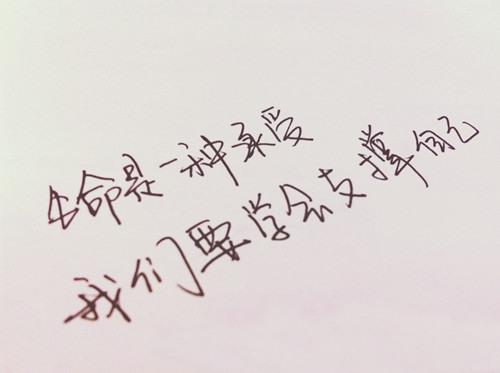 生命是一种承受
我们要学会支撑自己